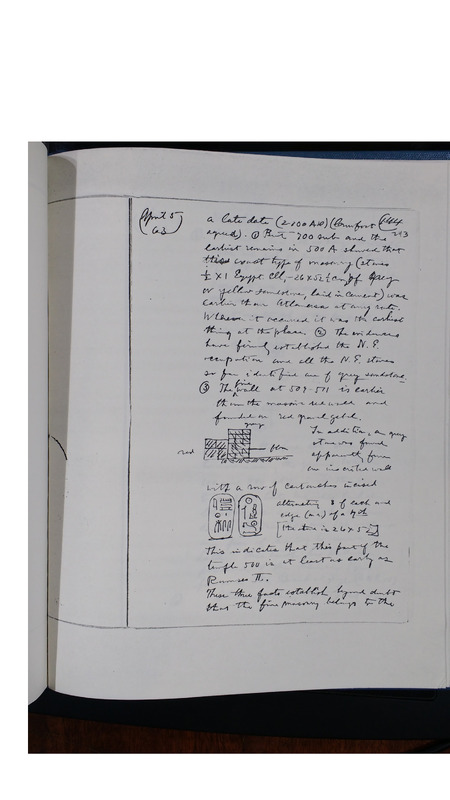 April 5
(G3
a late date (2-100 AD) (Crowfoot 644
agreed). ① But 700 sub and the 293
earliest remains in 500 A showed that
this exact type of masonry (stones
½ x 1 Egypt. Ell, - 26 x 52½ cm) of grey
or yellow sandstone, laid in cement) was
earlier than Atlanersa at any rate.
Wherever it occurred it was the earliest
thing at the place. ② The evidences
have firmly established the N.E.
occupation and all the N.E. stones
so far identified are of grey sandstone.
③ The fine wall at 509-501 is earlier
than the massive red wall and
founded on red gravel gebel.
grey
red
floor
In addition, a grey
stone was found
apparently from
an inscribed wall
with a row of cartouches incised
alternating 8 of each and
edge (arc) of a 9th
[the stone is 26 x 52]
This indicates that this part of the
temple 500 is at least as early as
Ramses II.
These three facts establish beyond doubt
that the fine masonry belongs to the